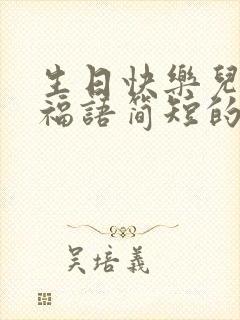 生日快樂兒
福語简短的
吴培義